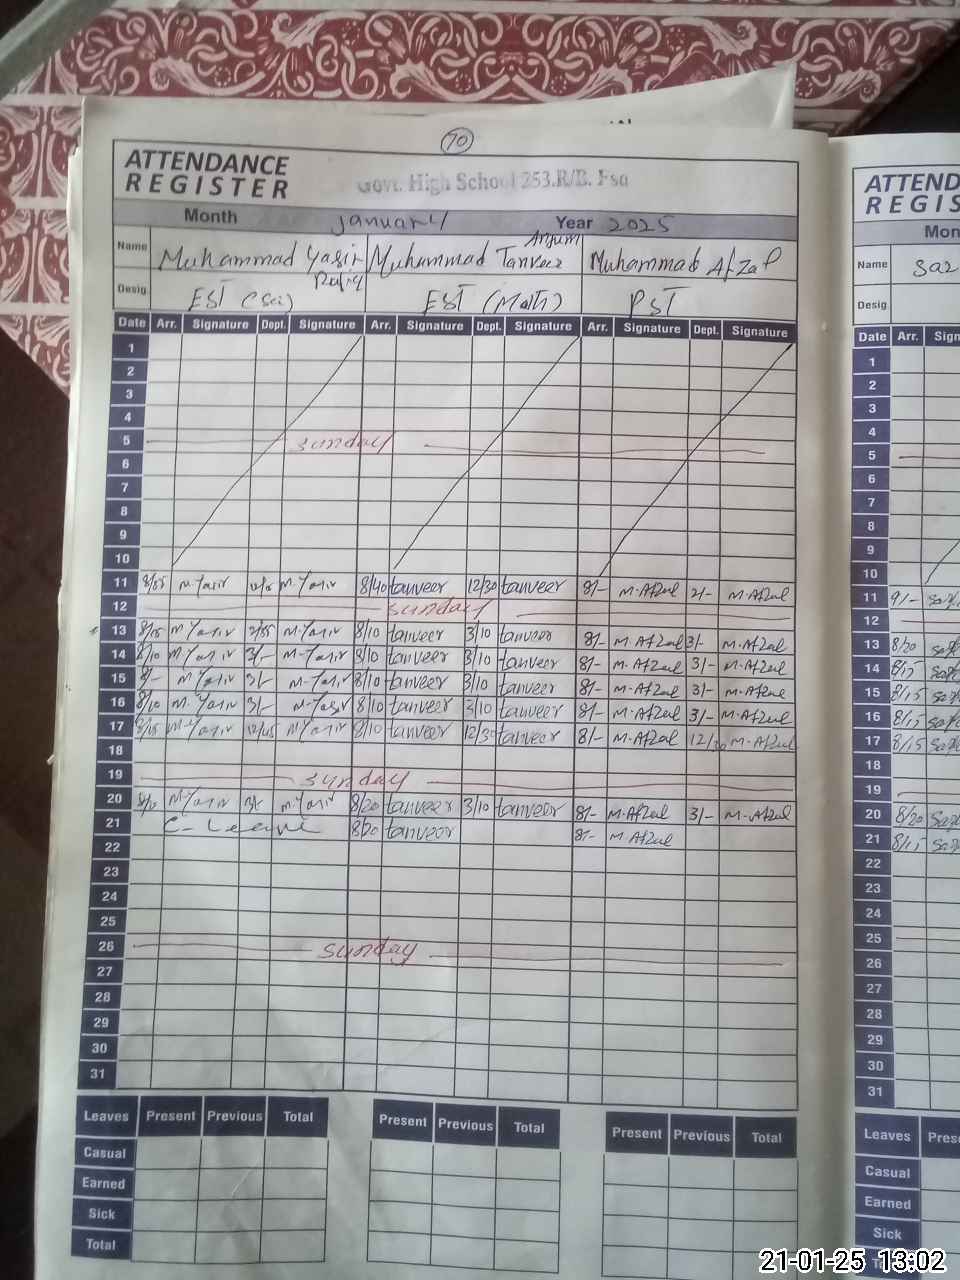 70
ATTENDANCE
REGISTER
Govt. High School 253.R/B. Fsd
Month January Year 2025
Name Muhammad Yasir Rafiq Muhammad Tanveer Anjum Muhammad Afzal
Desig. EST (Sci) EST (Math) PST
Date Arr. Signature Dept. Signature Arr. Signature Dept. Signature Arr. Signature Dept. Signature
1
2
3
4
5 Sunday
6
7
8
9
10
11 M-Yasir M-Yasir 8/40 tanveer 12/30 tanveer 8/- M.Afzal 2/- M.Afzal
12 Sunday
13 8/15 M-Yasir M-Yasir 8/10 tanveer 3/10 tanveer 8/- M.Afzal 3/- M.Afzal
14 8/10 M-Yasir 3/- M-Yasir 8/10 tanveer 3/10 tanveer 8/- M.Afzal 3/- M.Afzal
15 8/- M-Yasir 3/- M-Yasir 8/10 tanveer 3/10 tanveer 8/- M.Afzal 3/- M.Afzal
16 8/10 M-Yasir 3/- M-Yasir 8/10 tanveer 3/10 tanveer 8/- M.Afzal 3/- M.Afzal
17 8/15 M-Yasir M-Yasir 8/10 tanveer 12/30 tanveer 8/- M.Afzal 12/30 M.Afzal
18
19 Sunday
20 M-Yasir 3/- M-Yasir 8/20 tanveer 3/10 tanveer 8/- M.Afzal 3/- M.Afzal
21 C-Leave 8/20 tanveer 8/- M.Afzal
22
23
24
25
26 Sunday
27
28
29
30
31
Leaves Present Previous Total Present Previous Total Present Previous Total
Casual
Earned
Sick
Total
ATTEND
REGIS
Mon
Name
Desig.
Date Arr. Sign
1
2
3
4
5
6
7
8
9
10
11 9/-
12
13 8/20
14 8/15
15 8/15
16 8/15
17 8/15
18
19
20 8/20
21 8/15
22
23
24
25
26
27
28
29
30
31
Leaves Prese
Casual
Earned
Sick
21-01-25 13:02